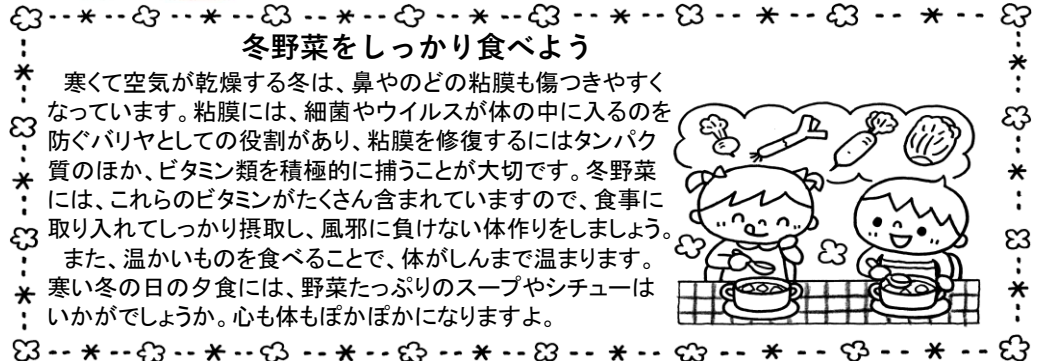 冬野菜をしっかり食べよう
寒くて空気が乾燥する冬は、鼻やのどの粘膜も傷つきやすく
なっています。粘膜には、細菌やウイルスが体の中に入るのを
防ぐバリヤとしての役割があり、粘膜を修復するにはタンパク
質のほか、ビタミン類を積極的に捕うことが大切です。冬野菜
には、これらのビタミンがたくさん含まれていますので、食事に
取り入れてしっかり摂取し、風邪に負けない体作りをしましょう。
また、温かいものを食べることで、体がしんまで温まります。
寒い冬の日の夕食には、野菜たっぷりのスープやシチューは
いかがでしょうか。心も体もぽかぽかになりますよ。